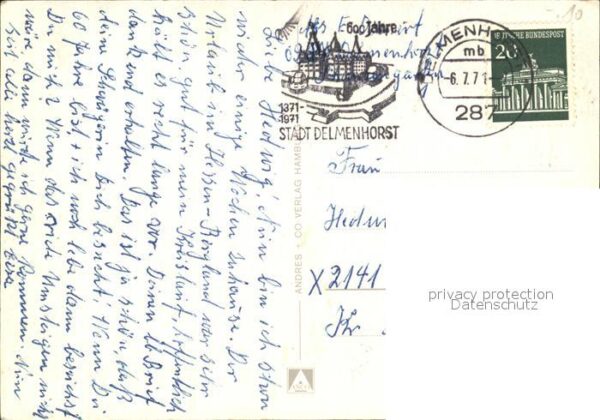 600 Jahre
1371-
1971
STADT DELMENHORST
DELMENHORST
mb
-6.7.71-
287
DEUTSCHE BUNDESPOST
20
Liebe Hedwig! Nun bin ich schon
wieder einige Wochen zuhause. Der
Urlaub im Hessen-Bergland war sehr
schön, gut für mein Kreislauf, hoffentlich
hält es recht lange vor. Deinen lb. Brief
dankend erhalten. Das ist ja schön, daß
deine Schwägerin Dich besucht. Wenn Du
60 Jahre bist, + ich noch lebe dann besuchst
Du mich? Wenn das viele Umsteigen nicht
wäre dann würde ich gerne kommen. Nun
sei alle herzl. gegrüßt
ANDRES + CO VERLAG HAMBU
Frau
X2141
Kr.
privacy protection
Datenschutz